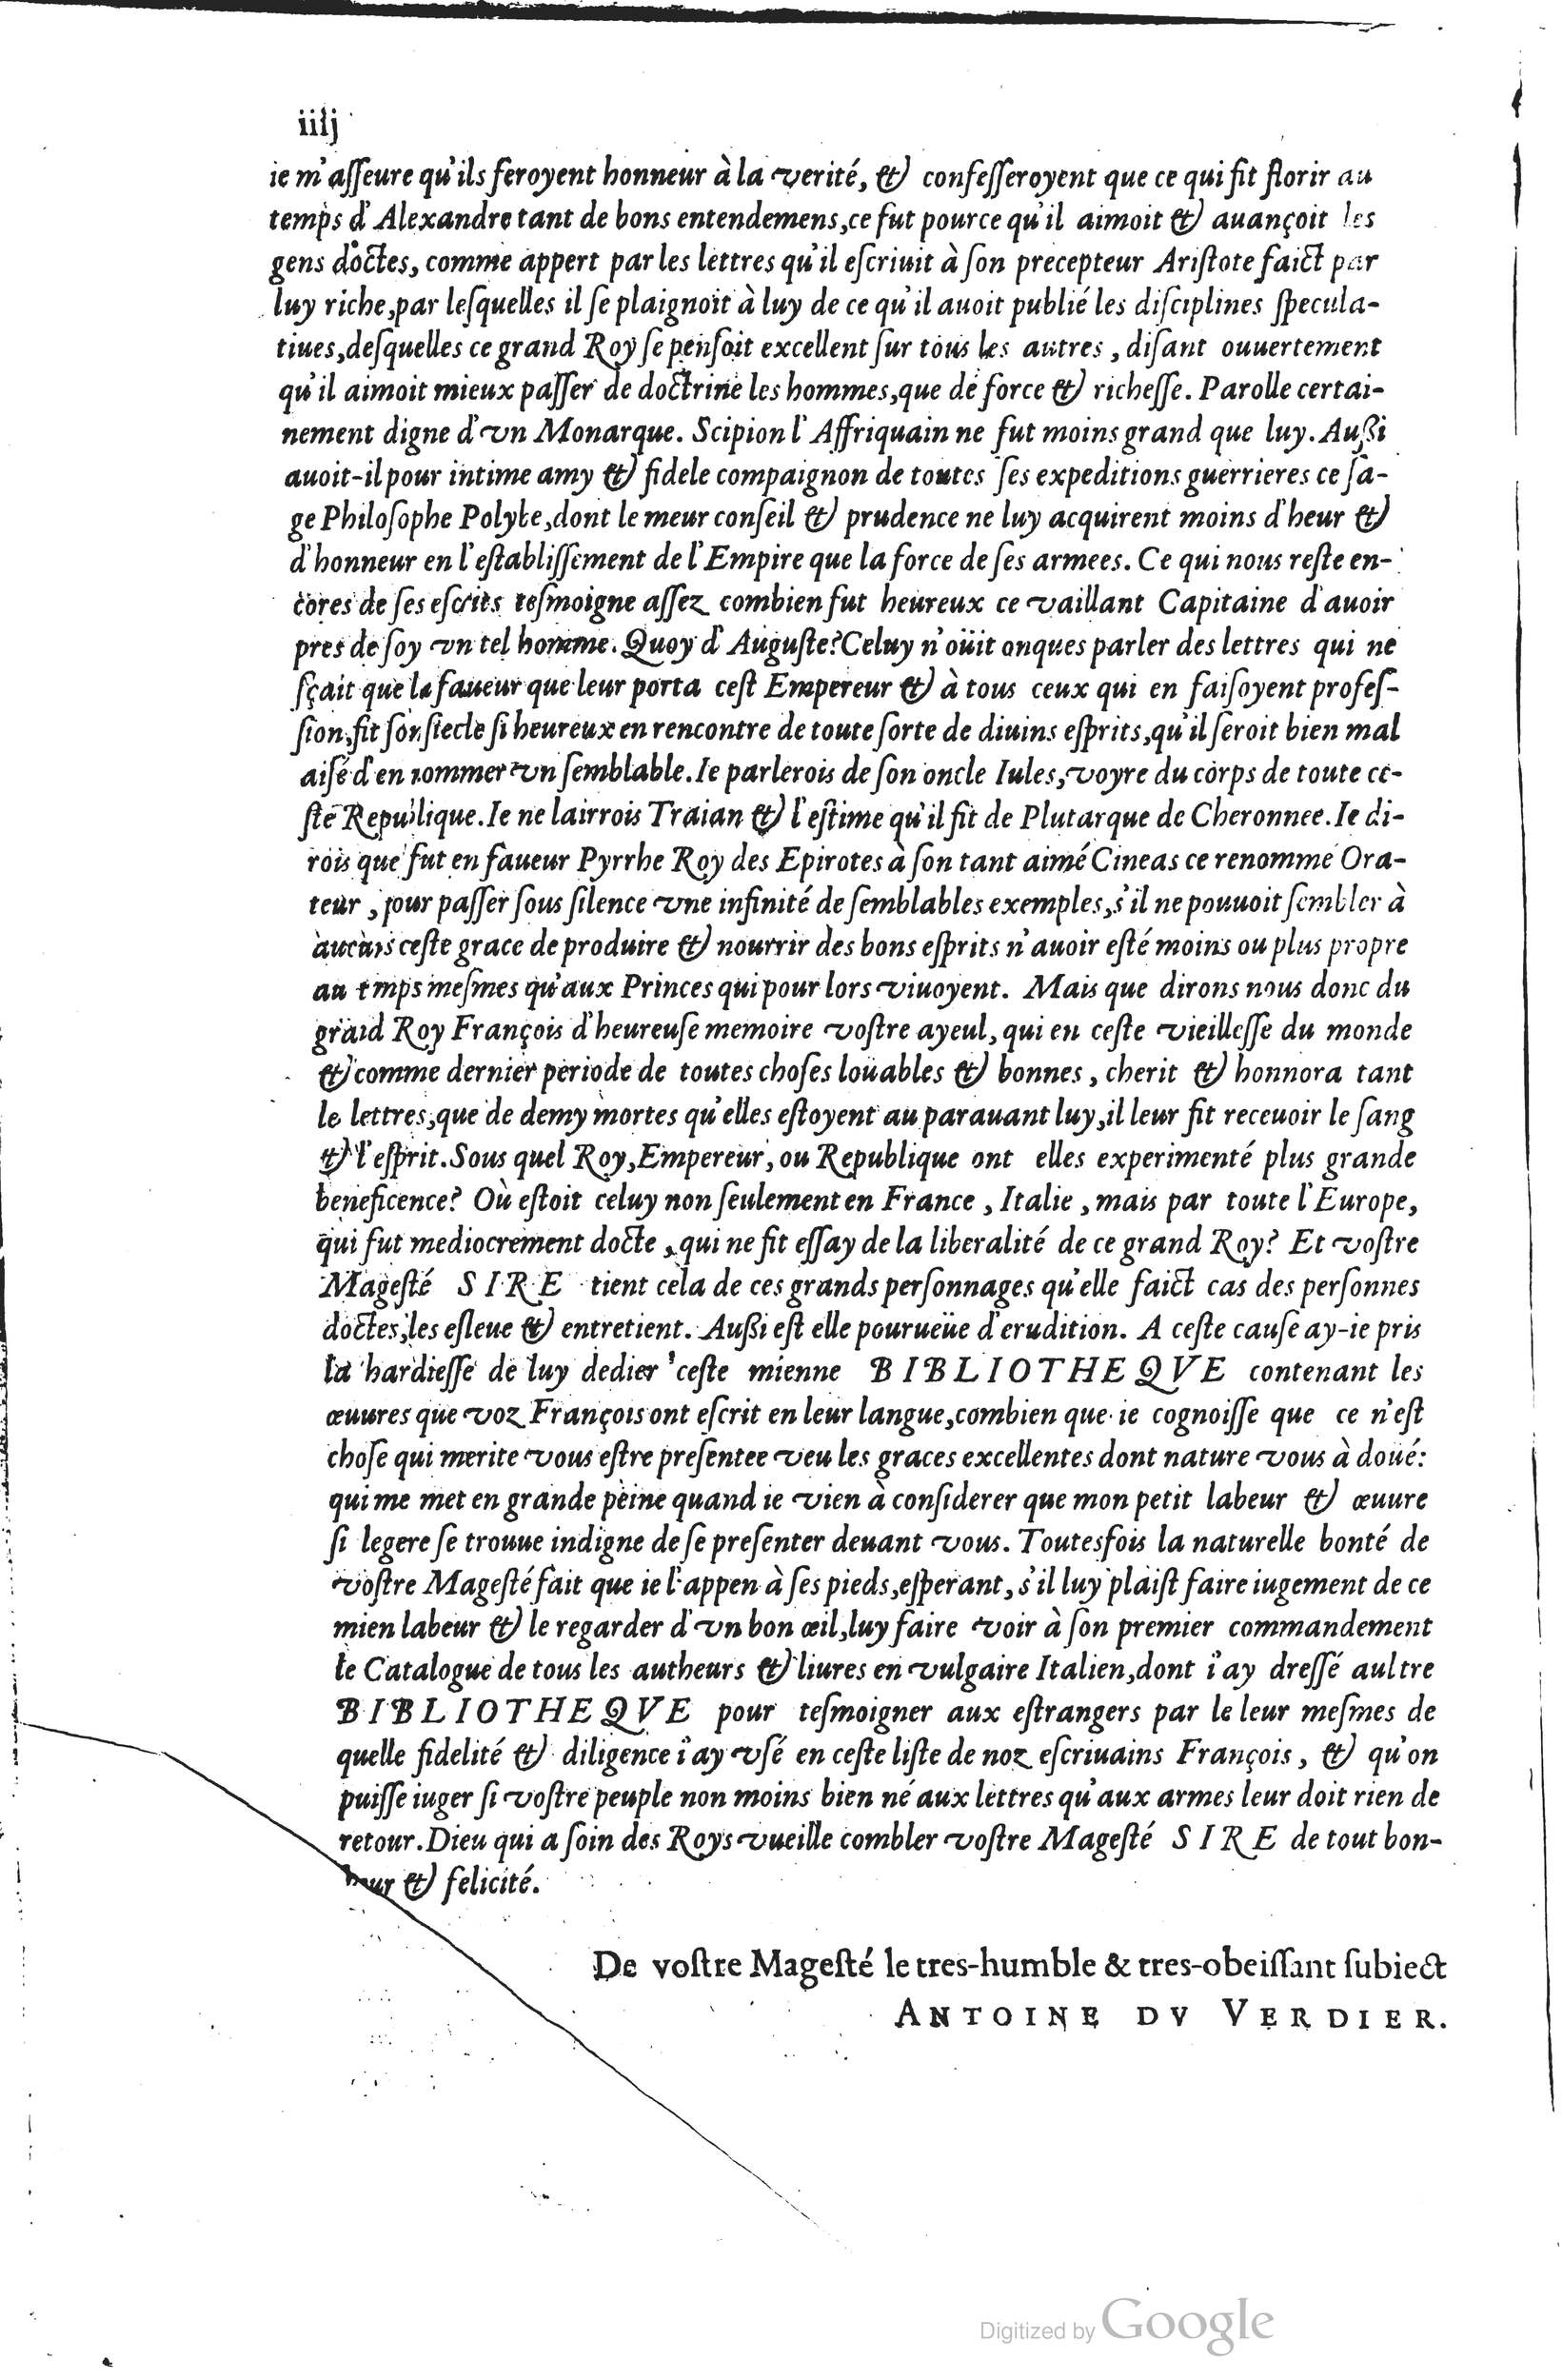 iiij
ie m'asseure qu'ils feroyent honneur à la verité, & confesseroyent que ce qui fit florir au
temps d'Alexandre tant de bons entendemens, ce fut pource qu'il aimoit & auançoit les
gens doctes, comme appert par les lettres qu'il escriuit à son precepteur Aristote faict par
luy riche, par lesquelles il se plaignoit à luy de ce qu'il auoit publié les disciplines specula-
tiues, desquelles ce grand Roy se pensoit excellent sur tous les autres, disant ouuertement
qu'il aimoit mieux passer de doctrine les hommes, que de force & richesse. Parolle certai-
nement digne d'vn Monarque. Scipion l'Affriquain ne fut moins grand que luy. Aussi
auoit-il pour intime amy & fidele compaignon de toutes ses expeditions guerrieres ce sa-
ge Philosophe Polybe, dont le meur conseil & prudence ne luy acquirent moins d'heur &
d'honneur en l'establissement de l'Empire que la force de ses armees. Ce qui nous reste en-
cores de ses escrits tesmoigne assez combien fut heureux ce vaillant Capitaine d'auoir
pres de soy vn tel homme. Quoy d'Auguste? Celuy n'oüit onques parler des lettres qui ne
sçait que la faueur que leur porta cest Empereur & à tous ceux qui en faisoyent profes-
sion, fit son siecle si heureux en rencontre de toute sorte de diuins esprits, qu'il seroit bien mal
aisé d'en nommer vn semblable. Ie parlerois de son oncle Iules, voyre du corps de toute ce-
ste Republique. Ie ne lairrois Traian & l'estime qu'il fit de Plutarque de Cheronnee. Ie di-
rois que fut en faueur Pyrrhe Roy des Epirotes à son tant aimé Cineas ce renommé Ora-
teur, pour passer sous silence vne infinité de semblables exemples, s'il ne pouuoit sembler à
aucuns ceste grace de produire & nourrir des bons esprits n'auoir esté moins ou plus propre
au temps mesmes qu'aux Princes qui pour lors viuoyent. Mais que dirons nous donc du
grand Roy François d'heureuse memoire vostre ayeul, qui en ceste vieillesse du monde
& comme dernier periode de toutes choses loüables & bonnes, cherit & honnora tant
le lettres, que de demy mortes qu'elles estoyent au parauant luy, il leur fit receuoir le sang
& l'esprit. Sous quel Roy, Empereur, ou Republique ont elles experimenté plus grande
beneficence? Où estoit celuy non seulement en France, Italie, mais par toute l'Europe,
qui fut mediocrement docte, qui ne fit essay de la liberalité de ce grand Roy? Et vostre
Magesté SIRE tient cela de ces grands personnages qu'elle faict cas des personnes
doctes, les esleue & entretient. Aussi est elle pourueüe d'erudition. A ceste cause ay-ie pris
la hardiesse de luy dedier ceste mienne BIBLIOTHEQVE contenant les
œuures que voz François ont escrit en leur langue, combien que ie cognoisse que ce n'est
chose qui merite vous estre presentee veu les graces excellentes dont nature vous à doué:
qui me met en grande peine quand ie vien à considerer que mon petit labeur & œuure
si legere se trouue indigne de se presenter deuant vous. Toutesfois la naturelle bonté de
vostre Magesté fait que ie l'appen à ses pieds, esperant, s'il luy plaist faire iugement de ce
mien labeur & le regarder d'vn bon œil, luy faire voir à son premier commandement
le Catalogue de tous les autheurs & liures en vulgaire Italien, dont i'ay dressé aultre
BIBLIOTHEQVE pour tesmoigner aux estrangers par le leur mesmes de
quelle fidelité & diligence i'ay vsé en ceste liste de noz escriuains François, & qu'on
puisse iuger si vostre peuple non moins bien né aux lettres qu'aux armes leur doit rien de
retour. Dieu qui a soin des Roys vueille combler vostre Magesté SIRE de tout bon-
heur & felicité.
De vostre Magesté le tres-humble & tres-obeissant subiect
ANTOINE DV VERDIER.
Digitized by Google